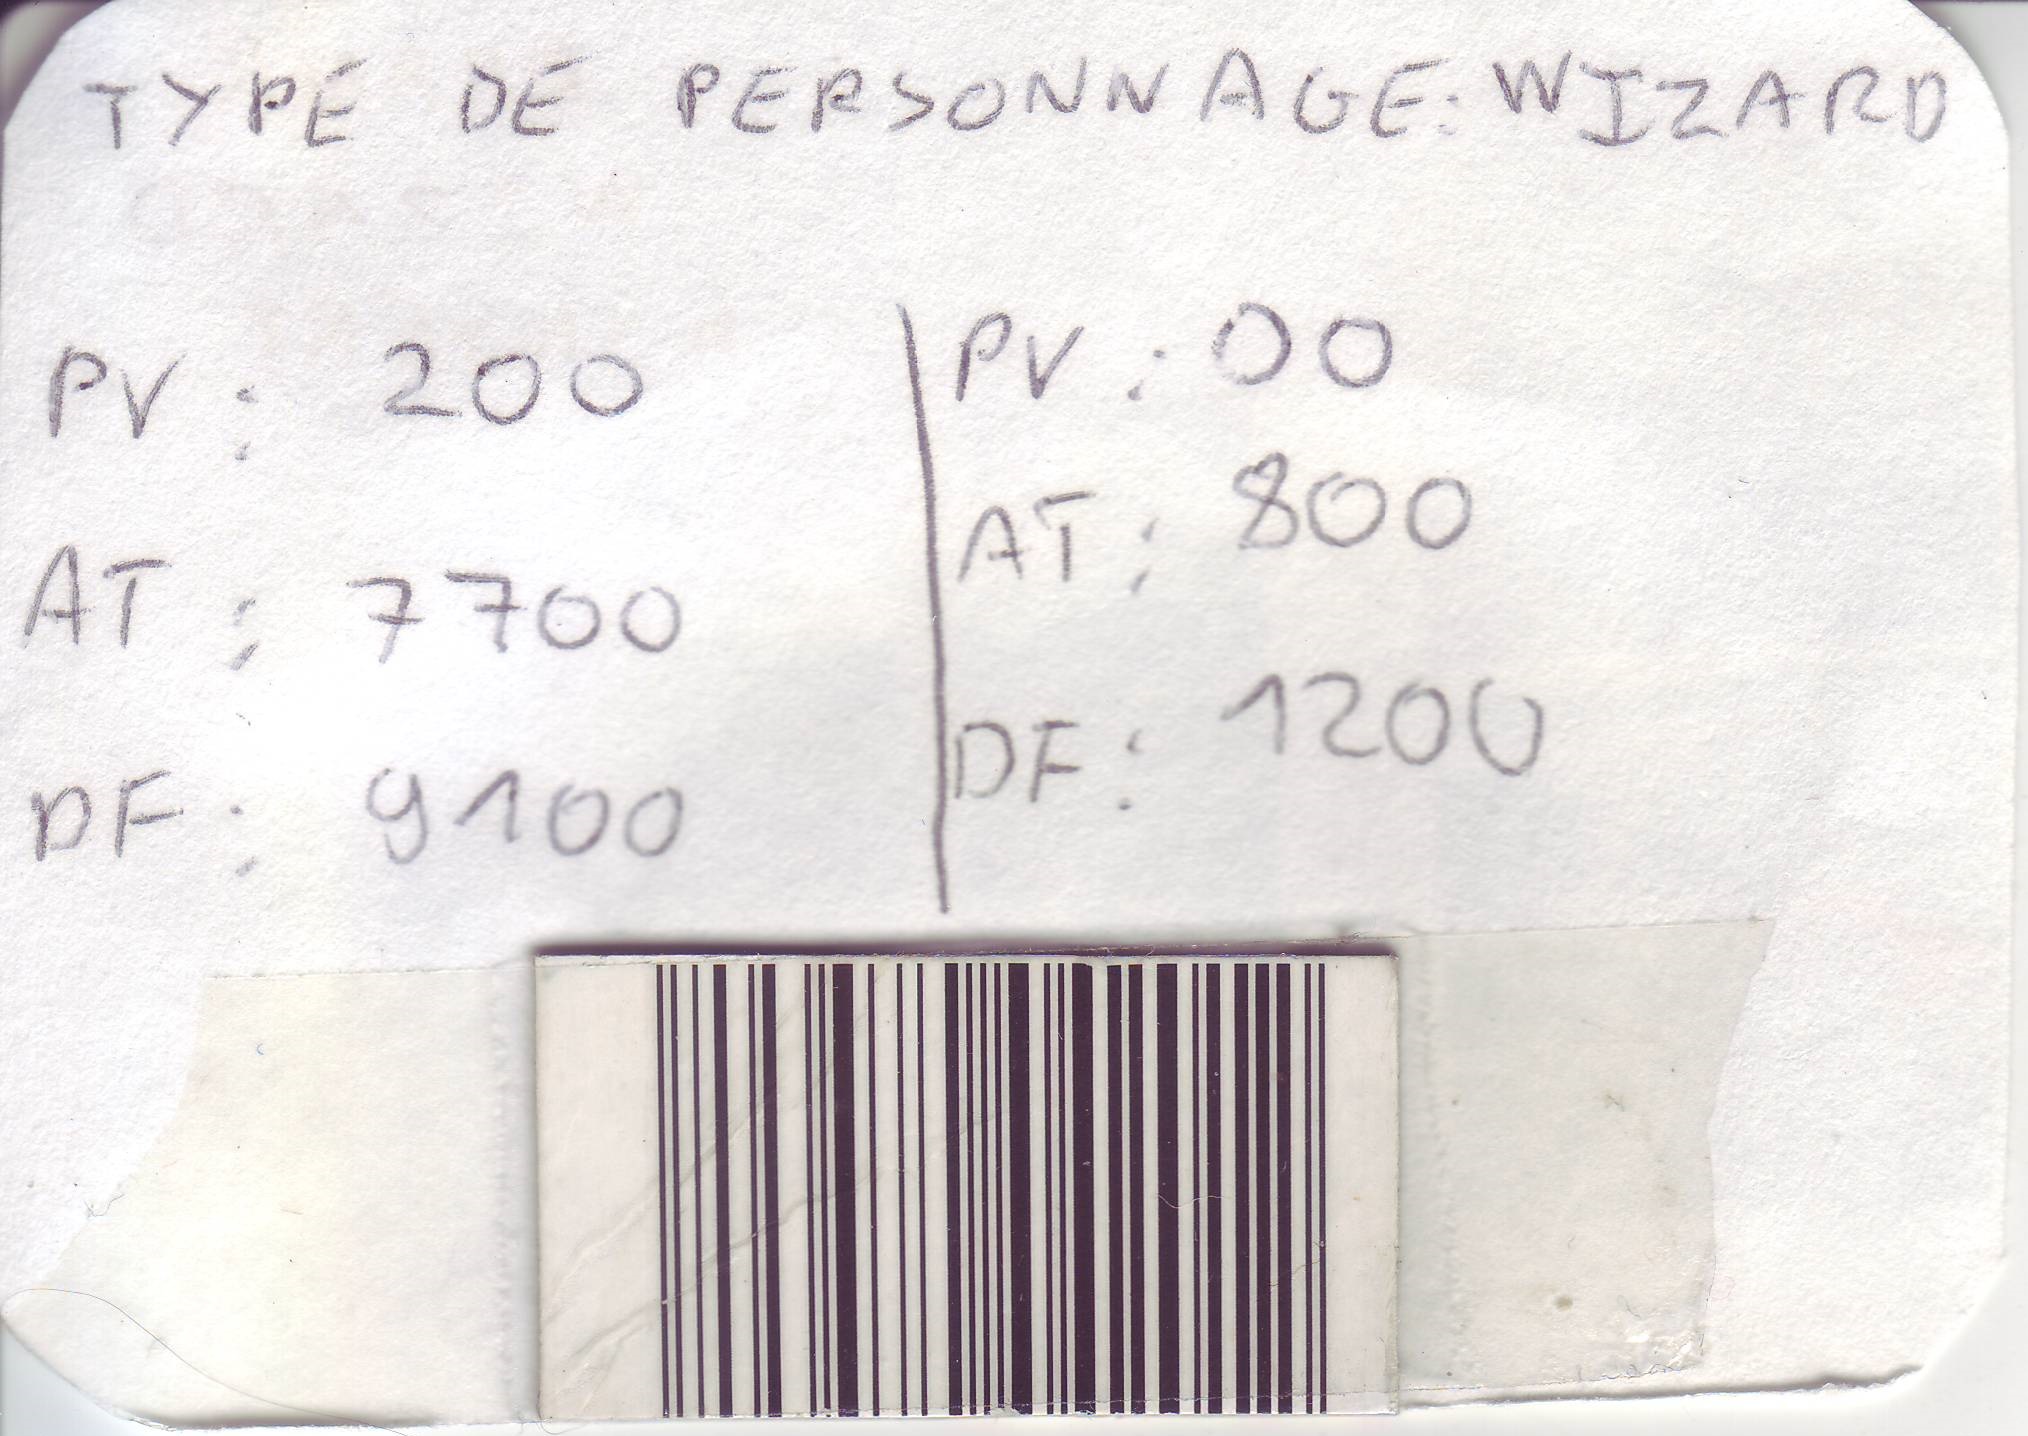 TYPE DE PERSONNAGE: WIZARD
PV: 200
AT: 7700
DF: 9100
PV: 00
AT: 800
DF: 1200